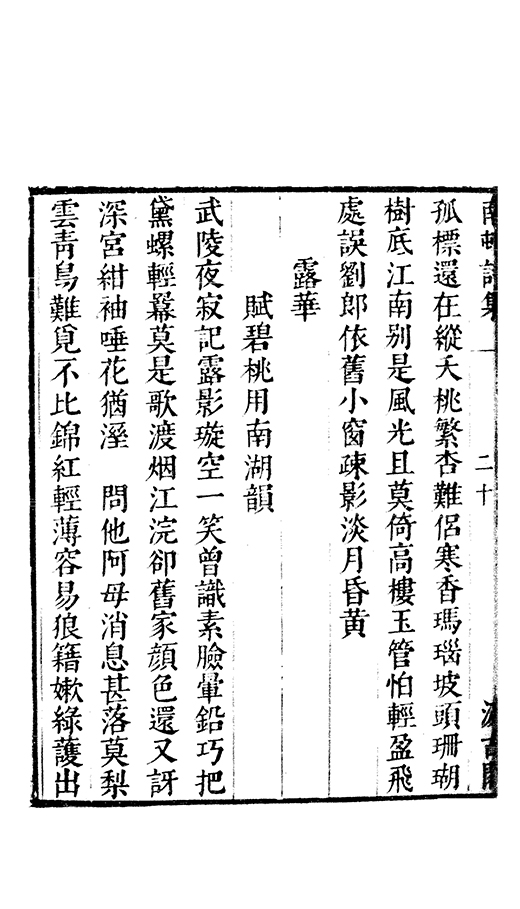 孤標還在縱夭桃繁杏難侣寒香瑪瑙坡頭珊瑚
樹底江南别是風光且莫倚高樓玉管怕輕盈飛
處誤劉郎依舊小窗疎影淡月昏黄
露華
賦碧桃用南湖韻
武陵夜寂記露影璇空一笑曾識素臉暈鉛巧把
黛螺輕冪莫是歌渡烟江浣卻舊家顏色還又訝
深宫紺袖唾花猶溼　問他阿母消息甚落莫梨
雲青鳥難覓不比錦紅輕薄容易狼籍嫰綠䕶出
二十